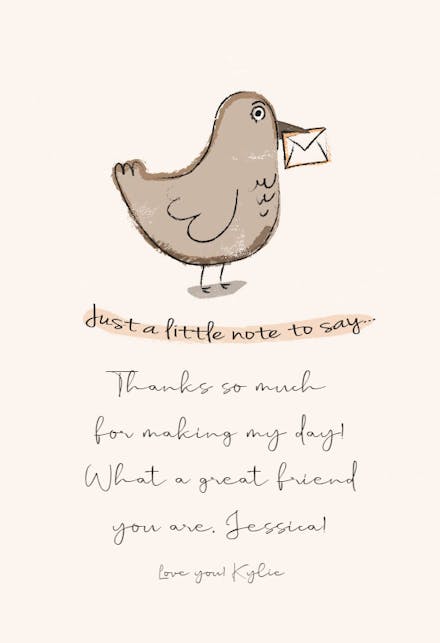 Just a little note to say...
Thanks so much
for making my day!
What a great friend
you are, Jessica!
Love you! Kylie